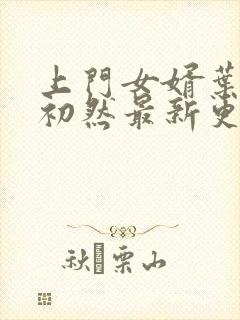 上門女婿葉
初然最新更
秋栗山